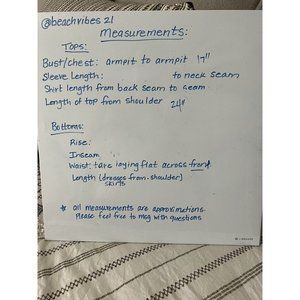 @beachvibes 21
Measurements:
Tops:
Bust/chest: armpit to armpit 17"
Sleeve Length: to neck seam
Shirt length from back seam to seam
Length of top from shoulder 24"
Bottoms:
Rise:
Inseam
Waist: take laying flat across front
Length (dresses from shoulder)
skirts
* all measurements are approximations.
Please feel free to msg with questions